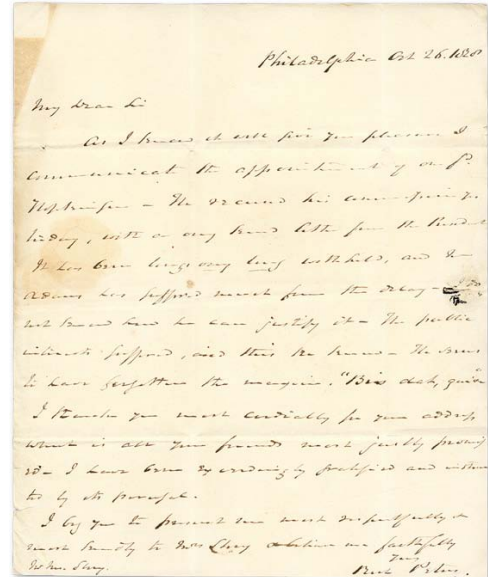 Philadelphia Oct 26. 1828
My Dear Sir
As I know it will give you pleasure I
communicate the appointment of our fr.
Hopkinson - He received his commission yes-
terday, with a very kind letter from the President
It has been long, very long withheld, and Mr
Adams has suffered much from the delay - I do
not know how he can justify it - The public
interests suffered, and this he knew - He seems
to have forgotten the maxim. "Bis dat, qui"
I thank you most cordially for your address
which is all your friends most justly promis
ed - I have been exceedingly gratified and instruc
ted by its perusal.
I beg you to present me most respectfully &
most kindly to Mrs Story & believe me faithfully
Yours
Rich Peters.